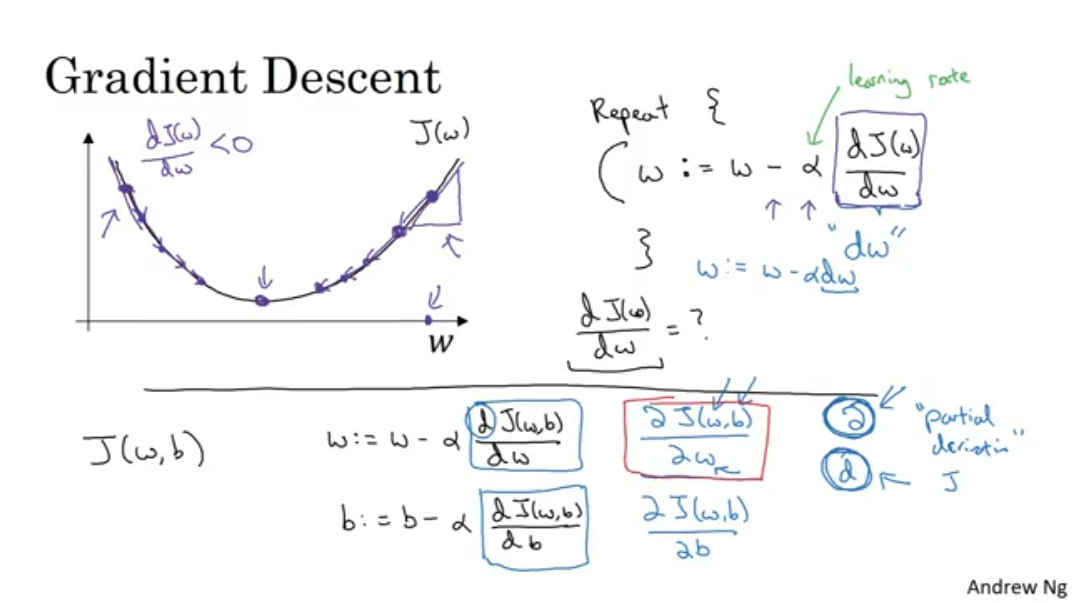 Gradient Descent
learning rate
Repeat {
dJ(w)/dw <0
J(w)
w := w - α dJ(w)/dw
"dw"
}
w := w - αdw
w
dJ(w)/dw = ?
J(w,b)
w := w - α dJ(w,b)/dw
∂J(w,b)/∂w
∂
"partial
derivative"
d
J
b := b - α dJ(w,b)/db
∂J(w,b)/∂b
Andrew Ng